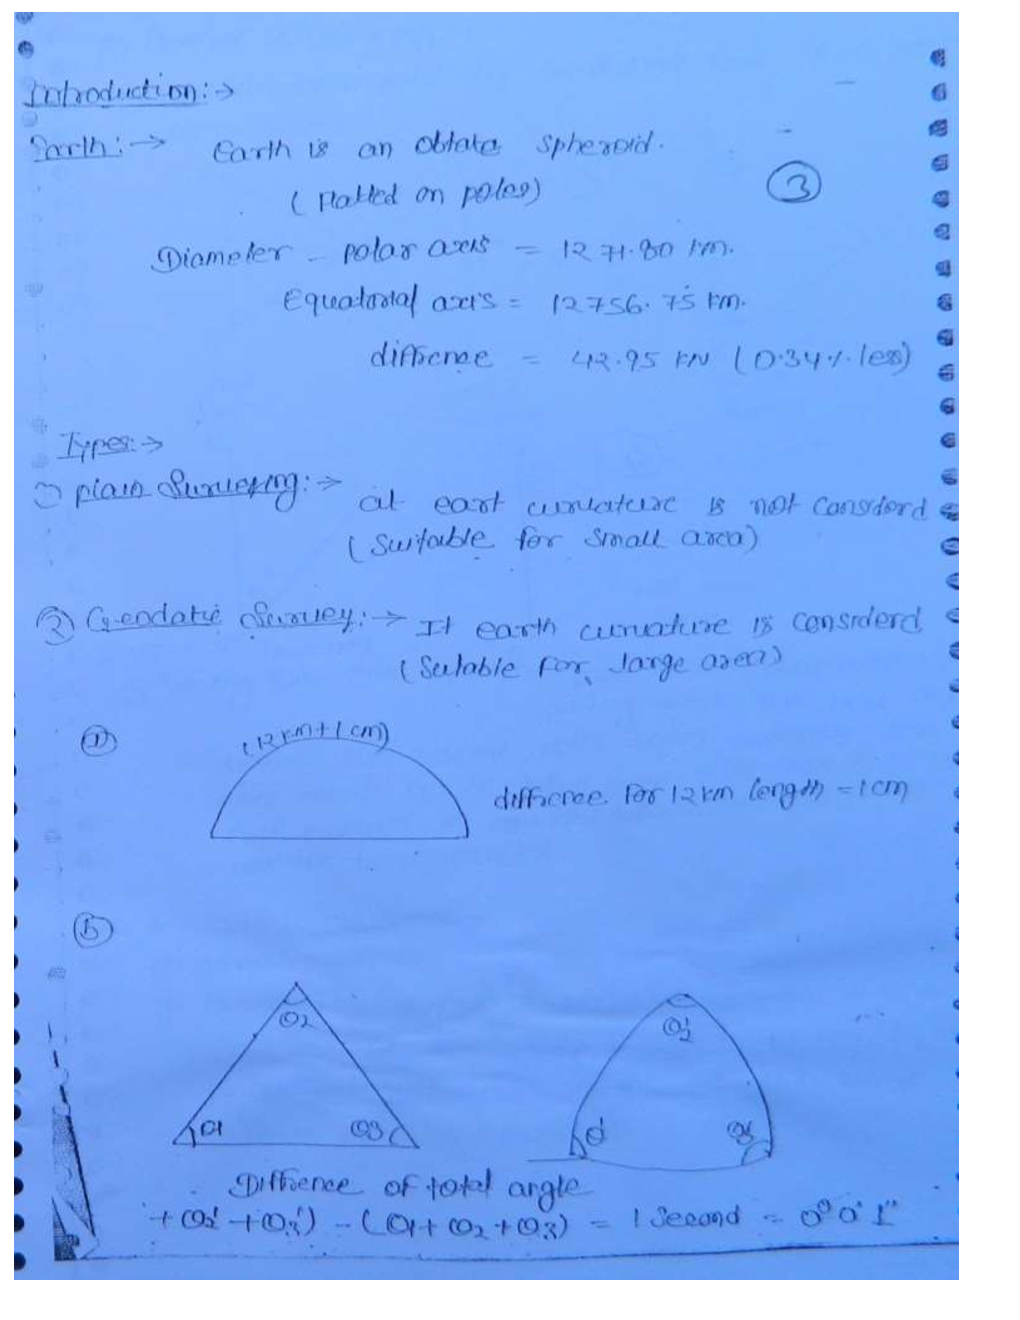 Introduction:→
Earth:→ Earth is an oblate spheroid.
(flatted on poles)
3
Diameter - polar axis = 1271.80 km.
Equatorial axis = 12756.75 km.
diffrence = 42.95 km (0.34% less)
Types:→
① plain Surveying:→ at eart curvature is not considord
(Suitable for small area)
② Geodatic Survey:→ It earth curvature is considerd
(Sutable for large area)
ⓐ (12 km+1 cm)
diffrence for 12 km length = 1 cm
ⓑ
θ2 θ2'
θ1 θ3 θ' θ3'
Diffrence of total angle
+ θ2' + θ3') - (θ1 + θ2 + θ3) = 1 Second = 0° 0' 1"